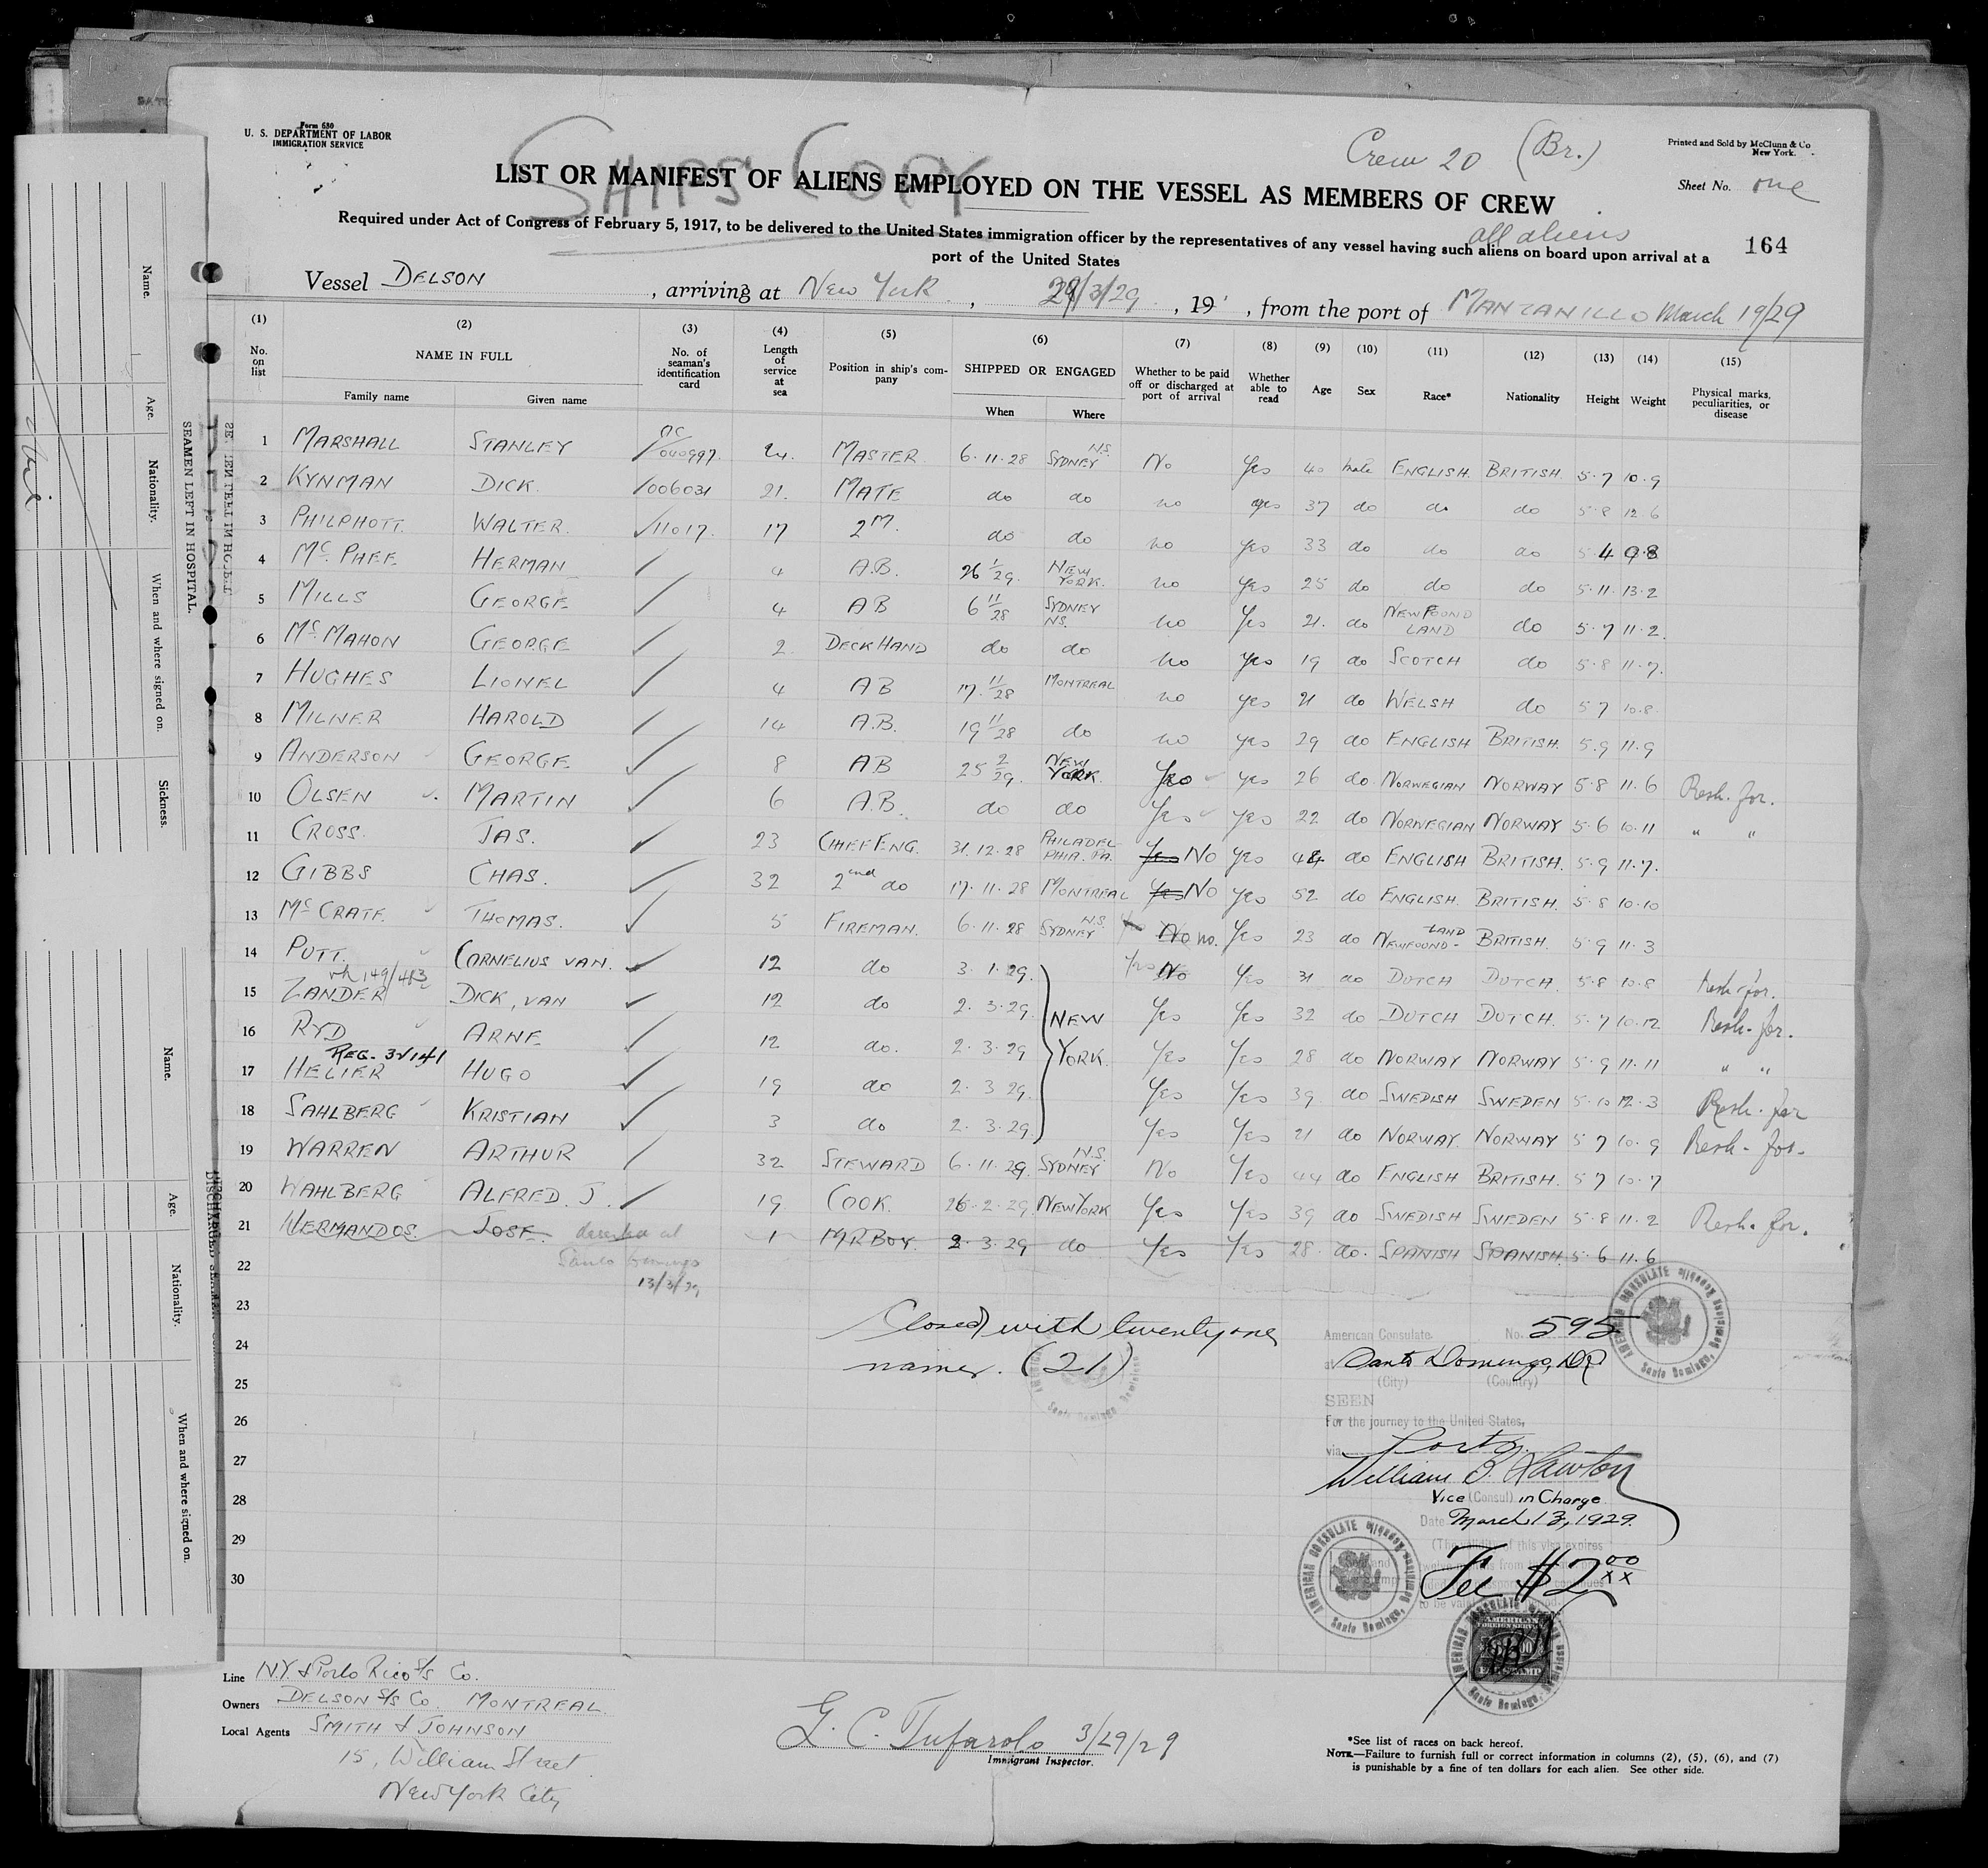 Form 680
U. S. DEPARTMENT OF LABOR
IMMIGRATION SERVICE
SHIPS COPY
Crew 20 (Br.)
Printed and Sold by McClunn & Co
New York.
Sheet No. one
LIST OR MANIFEST OF ALIENS EMPLOYED ON THE VESSEL AS MEMBERS OF CREW
all aliens
164
Required under Act of Congress of February 5, 1917, to be delivered to the United States immigration officer by the representatives of any vessel having such aliens on board upon arrival at a
port of the United States
Vessel DELSON, arriving at New York, 29/3/29, 19 , from the port of MANZANILLO March 19/29
(1) (2) (3) (4) (5) (6) (7) (8) (9) (10) (11) (12) (13) (14) (15)
No. on list
NAME IN FULL
Family name Given name
No. of seaman's identification card
Length of service at sea
Position in ship's company
SHIPPED OR ENGAGED
When Where
Whether to be paid off or discharged at port of arrival
Whether able to read
Age Sex Race* Nationality Height Weight
Physical marks, peculiarities, or disease
1 MARSHALL STANLEY 040997. 24. MASTER 6.11.28 SYDNEY N.S. No Yes 40 Male ENGLISH BRITISH. 5.7 10.9
2 KYNMAN DICK. 006031 21. MATE do do no yes 37 do do do 5.8 12.6
3 PHILPHOTT. WALTER. 11017. 17 2nd M. do do no yes 33 do do do 5.4 9.8
4 McPHEE HERMAN 4 A.B. 26 1/29. NEW YORK. no yes 25 do do do 5.11. 13.2
5 MILLS GEORGE 4 AB 6 11/28 SYDNEY NS. no Yes 21. do NEWFOUNDLAND do 5.7 11.2.
6 McMAHON GEORGE 2 DECKHAND do do no yes 19 do SCOTCH do 5.8 11.7.
7 HUGHES LIONEL 4 AB 17. 11/28 MONTREAL no yes 21 do WELSH do 5 7 10.8
8 MILNER HAROLD 14 A.B. 19 11/28 do no yes 29 do ENGLISH BRITISH. 5.9 11.9
9 ANDERSON GEORGE 8 AB 25 2/29. NEW YORK. Yes yes 26 do NORWEGIAN NORWAY 5.8 11.6 Resh. for.
10 OLSEN MARTIN 6 A.B. do do Yes yes 22 do NORWEGIAN NORWAY 5.6 10.11 " "
11 CROSS. JAS. 23 CHIEF ENG. 31.12.28 PHILADELPHIA. PA. Yes No yes 44 do ENGLISH BRITISH. 5.9 11.7.
12 GIBBS CHAS. 32 2nd do 17.11.28 MONTREAL Yes No yes 52 do ENGLISH. BRITISH. 5.8 10.10
13 McCRATE THOMAS. 5 FIREMAN. 6.11.28 SYDNEY N.S. No no. Yes 23 do NEWFOUNDLAND BRITISH. 5.9 11.3
14 PUTT. CORNELIUS VAN. 12 do 3.1.29. Yes No Yes 31 do DUTCH DUTCH. 5.8 10.8 Resh. for.
149/413
15 ZANDER DICK, VAN 12 do 2.3.29. NEW Yes Yes 32 do DUTCH DUTCH. 5.7 10.12 Resh. for.
16 RYD ARNE 12 do. 2.3.29 YORK. Yes Yes 28 do NORWAY NORWAY 5.9 11.11 " "
REG. 3V141
17 HELIER HUGO 19 do 2.3 29. Yes Yes 39 do SWEDISH SWEDEN 5.10 12.3 Resh. for
18 SAHLBERG KRISTIAN 3 do 2.3.29. Yes Yes 21 do NORWAY. NORWAY 5 7 10.9 Resh. for.
19 WARREN ARTHUR 32 STEWARD 6.11.29. SYDNEY N.S. No Yes 44 do ENGLISH BRITISH. 5 7 10.7
20 WAHLBERG ALFRED. J. 19 COOK. 26.2.29 NEW YORK Yes Yes 39 do SWEDISH SWEDEN 5.8 11.2 Resh. for.
21 HERMANDOS. JOSE. deserted at 1 MRBOY. 2.3.29 do Yes Yes 28. do. SPANISH SPANISH. 5.6 11.6
Santo Domingo
22 13/3/29
23
24
25
26
27
28
29
30
Closed with twenty one
names. (21)
American Consulate. No. 595
at Santo Domingo, DR
(City) (Country)
SEEN
For the journey to the United States,
via Porto
William B. Lawton
Vice (Consul) in Charge
Date March 13, 1929.
Fee $2 00/xx
AMERICAN CONSULATE Santo Domingo, Dominican Republic
AMERICAN CONSULATE Santo Domingo, Dominican Republic
AMERICAN FOREIGN SERVICE
FEE STAMP
Line N.Y. & Porto Rico S/s Co.
Owners DELSON S/S Co. MONTREAL.
Local Agents SMITH & JOHNSON
15, William Street
New York City
G. C. Tufarolo 3/29/29
Immigrant Inspector.
*See list of races on back hereof.
NOTE.—Failure to furnish full or correct information in columns (2), (5), (6), and (7)
is punishable by a fine of ten dollars for each alien. See other side.
SEAMEN LEFT IN HOSPITAL.
Name. Age. Nationality. When and where signed on. Sickness.
DISCHARGED SEAMEN
Name. Age. Nationality. When and where signed on.